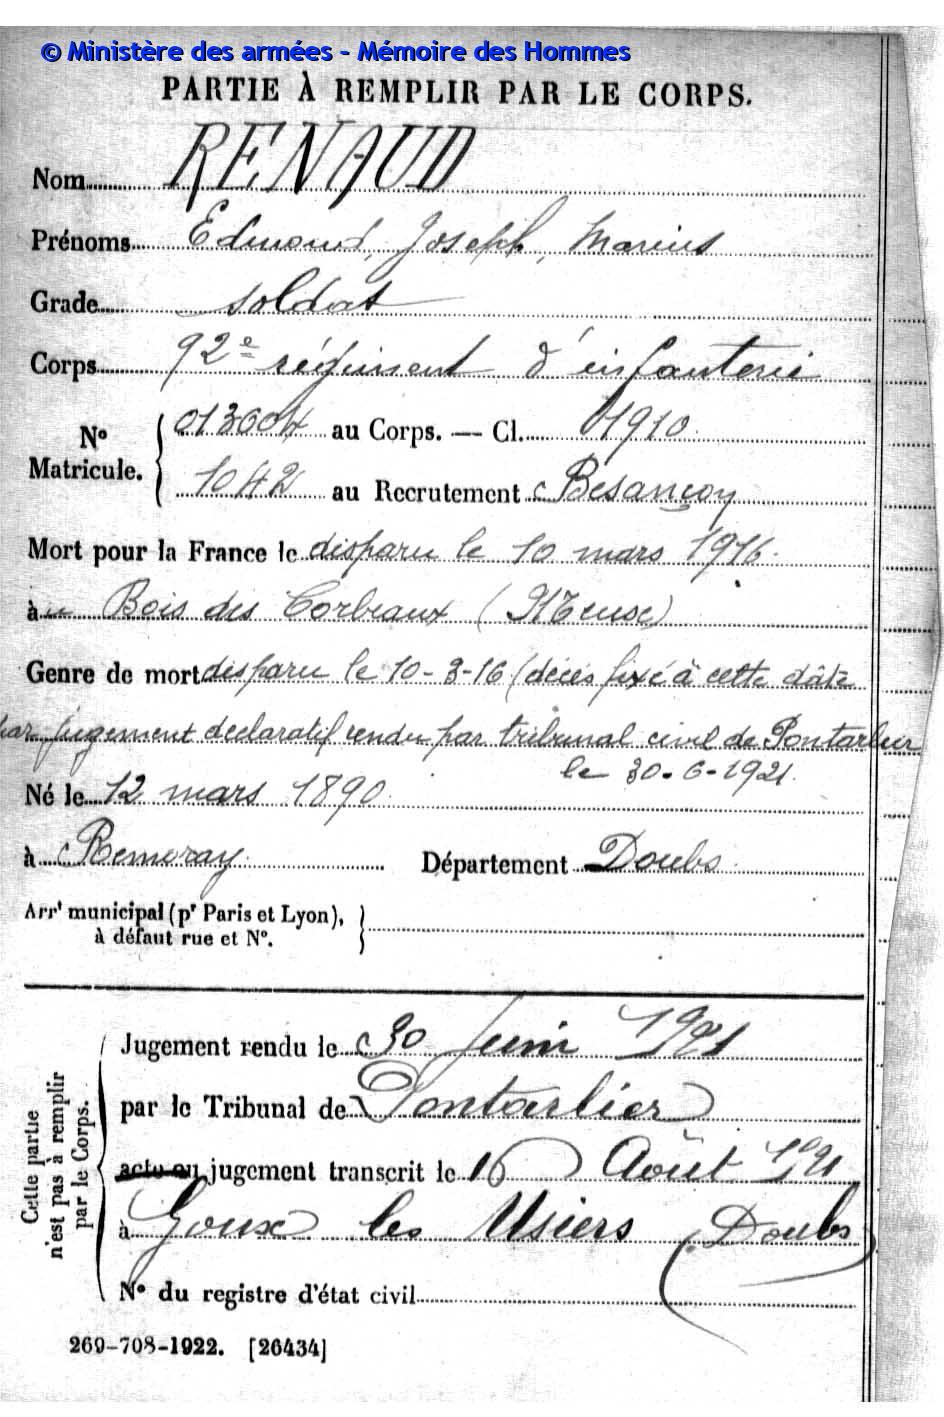 © Ministère des armées - Mémoire des Hommes
PARTIE À REMPLIR PAR LE CORPS.
Nom RENAUD
Prénoms Edmond, Joseph, Marius
Grade soldat
Corps 92e régiment d'infanterie
No Matricule. 013604 au Corps. — Cl. 1910
1042 au Recrutement Besançon
Mort pour la France le disparu le 10 mars 1916.
àu Bois des Corbeaux (Meuse)
Genre de mort disparu le 10-3-16 (décès fixé à cette date
par jugement declaratif rendu par tribunal civil de Pontarlier
le 30-6-1921.
Né le 12 mars 1890
à Remoray Département Doubs
Arrt municipal (pr Paris et Lyon),
à défaut rue et No.
Cette partie n'est pas à remplir par le Corps.
Jugement rendu le 30 Juin 1921
par le Tribunal de Pontarlier
acte ou jugement transcrit le 16 Août 1921
à Goux les Usiers (Doubs)
No du registre d'état civil
269-708-1922. [26434]